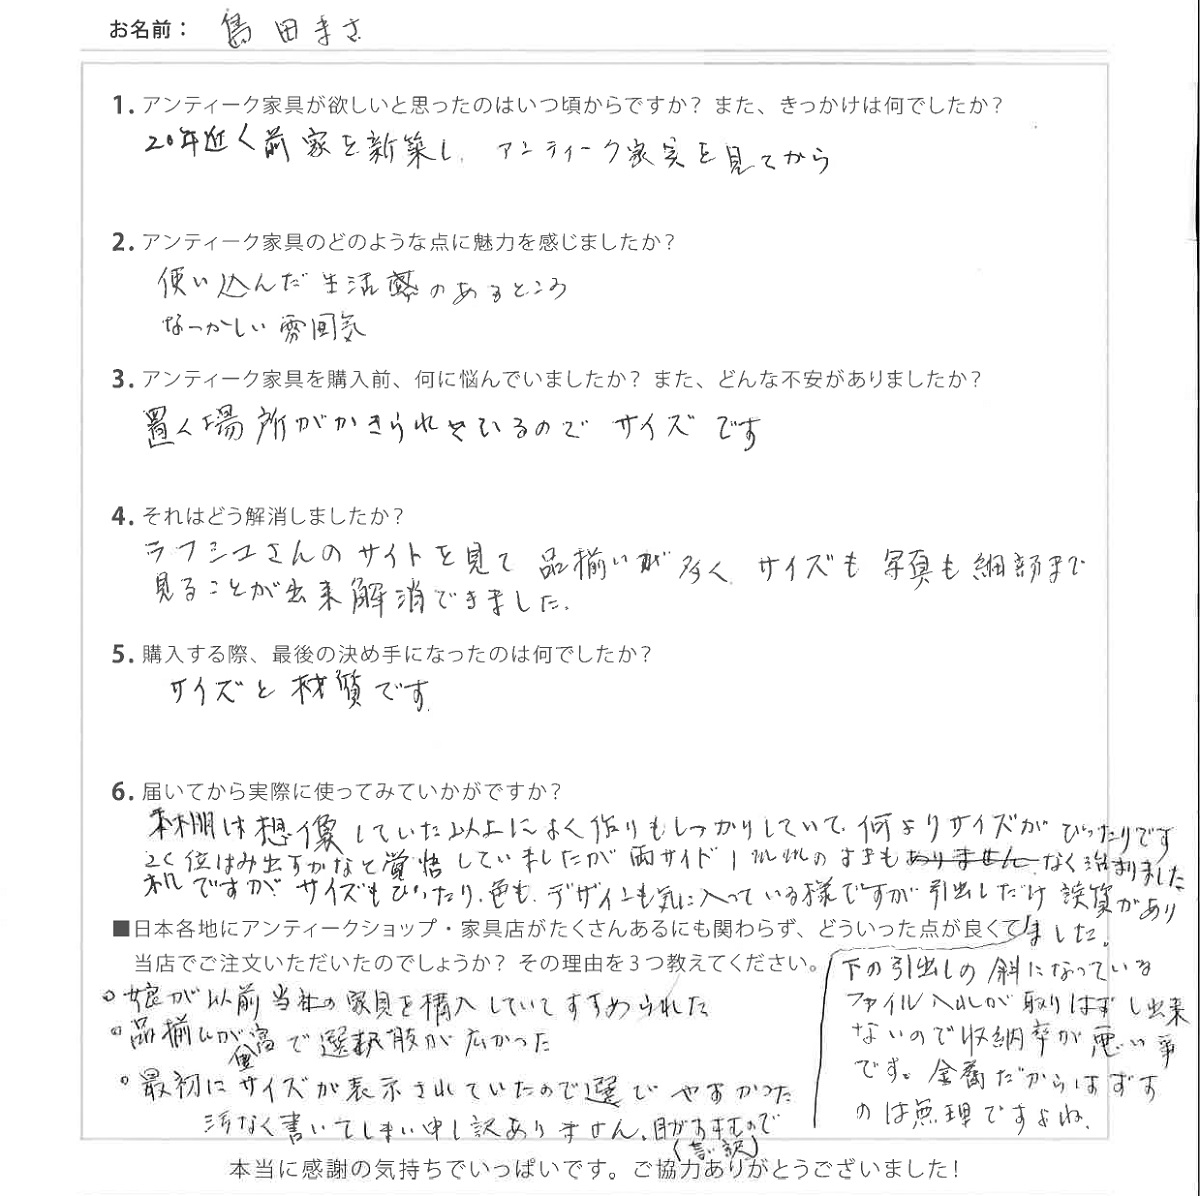 お名前： 島田まさ
1. アンティーク家具が欲しいと思ったのはいつ頃からですか？ また、きっかけは何でしたか？
20年近く前家を新築し、アンティーク家具を見てから
2. アンティーク家具のどのような点に魅力を感じましたか？
使い込んだ生活感のあるところ
なつかしい雰囲気
3. アンティーク家具を購入前、何に悩んでいましたか？ また、どんな不安がありましたか？
置く場所がかぎられているのでサイズです
4. それはどう解消しましたか？
ラフジュさんのサイトを見て品揃いが多く、サイズも写真も細部まで
見ることが出来解消できました。
5. 購入する際、最後の決め手になったのは何でしたか？
サイズと材質です。
6. 届いてから実際に使ってみていかがですか？
本棚は想像していた以上によく作りもしっかりしていて、何よりサイズがぴったりです
2c位はみ出すかなと覚悟していましたが両サイド1mmのすきもありません なく治まりました
机ですが、サイズもぴったり、色も、デザインも気に入っている様ですが引出しだけ誤算があり
ました。
■日本各地にアンティークショップ・家具店がたくさんあるにも関わらず、どういった点が良くて
当店でご注文いただいたのでしょうか？ その理由を３つ教えてください。
下の引出しの斜になっている
ファイル入れが取りはずし出来
ないので収納率が悪い事
です。金具だからはずす
のは無理ですよね。
○娘が以前当社の家具を購入していてすすめられた
○品揃いが豊富で選択肢が広かった
○最初にサイズが表示されていたので選びやすかった
汚なく書いてしまい申し訳ありません。目がかすむので
（言い訳）
本当に感謝の気持ちでいっぱいです。ご協力ありがとうございました！